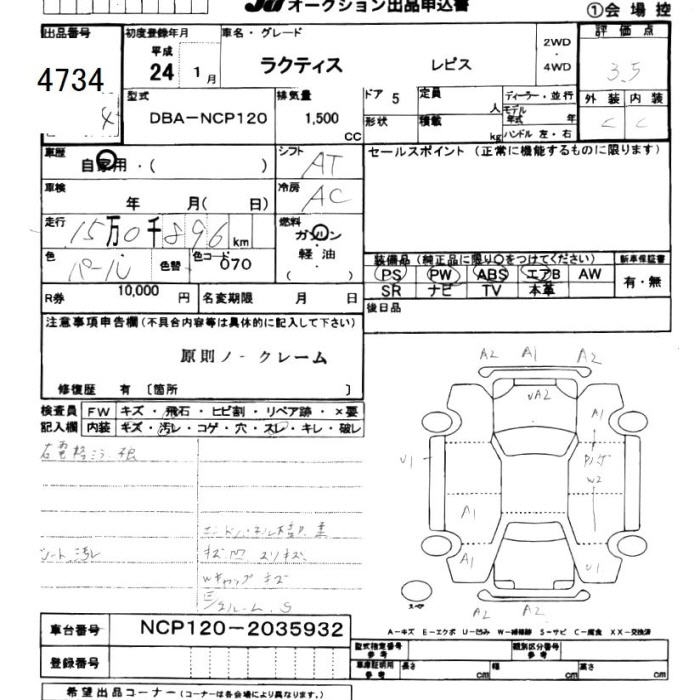 オークション出品申込書
①会場控
出品番号
4734
初度登録年月
平成
24 1月
車名・グレード
ラクティス レピス
2WD
4WD
評価点
3.5
型式
DBA-NCP120
排気量
1,500
CC
ドア 5
定員
人
ディーラー・並行
モデル
年式 年
形状
積載
kg
ハンドル 左・右
外装 内装
C C
車歴
自家用・( )
シフト
AT
セールスポイント(正常に機能するものに限ります)
車検
年 月( 日)
冷房
AC
走行
15万0千896km
燃料
ガソリン
軽油
( )
色
パール
色替
色コード
070
装備品(純正品に限り○をつけてください)
新車保証書
PS PW ABS エアB AW
SR ナビ TV 本革
有・無
R券
10,000円
名変期限 月 日
後日品
注意事項申告欄(不具合内容等は具体的に記入して下さい)
原則ノークレーム
修復歴 有〔箇所 〕
検査員
記入欄
FW キズ・飛石・ヒビ割・リペア跡・×要
内装 キズ・汚レ・コゲ・穴・スレ・キレ・破レ
シート汚レ
Wキャップ キズ
A2 A1 A2
A2
A1
U1
W2
A1 A1
A2 A2
スペア
A-キズ E-エクボ U-凹み W-補修跡 S-サビ C-腐食 XX-交換済
車台番号
NCP120-2035932
登録番号
型式指定番号
参考
類別区分番号
参考
車庫証明用
参考
長さ cm
幅 cm
高さ cm
希望出品コーナー(コーナーは各会場により異なります。)